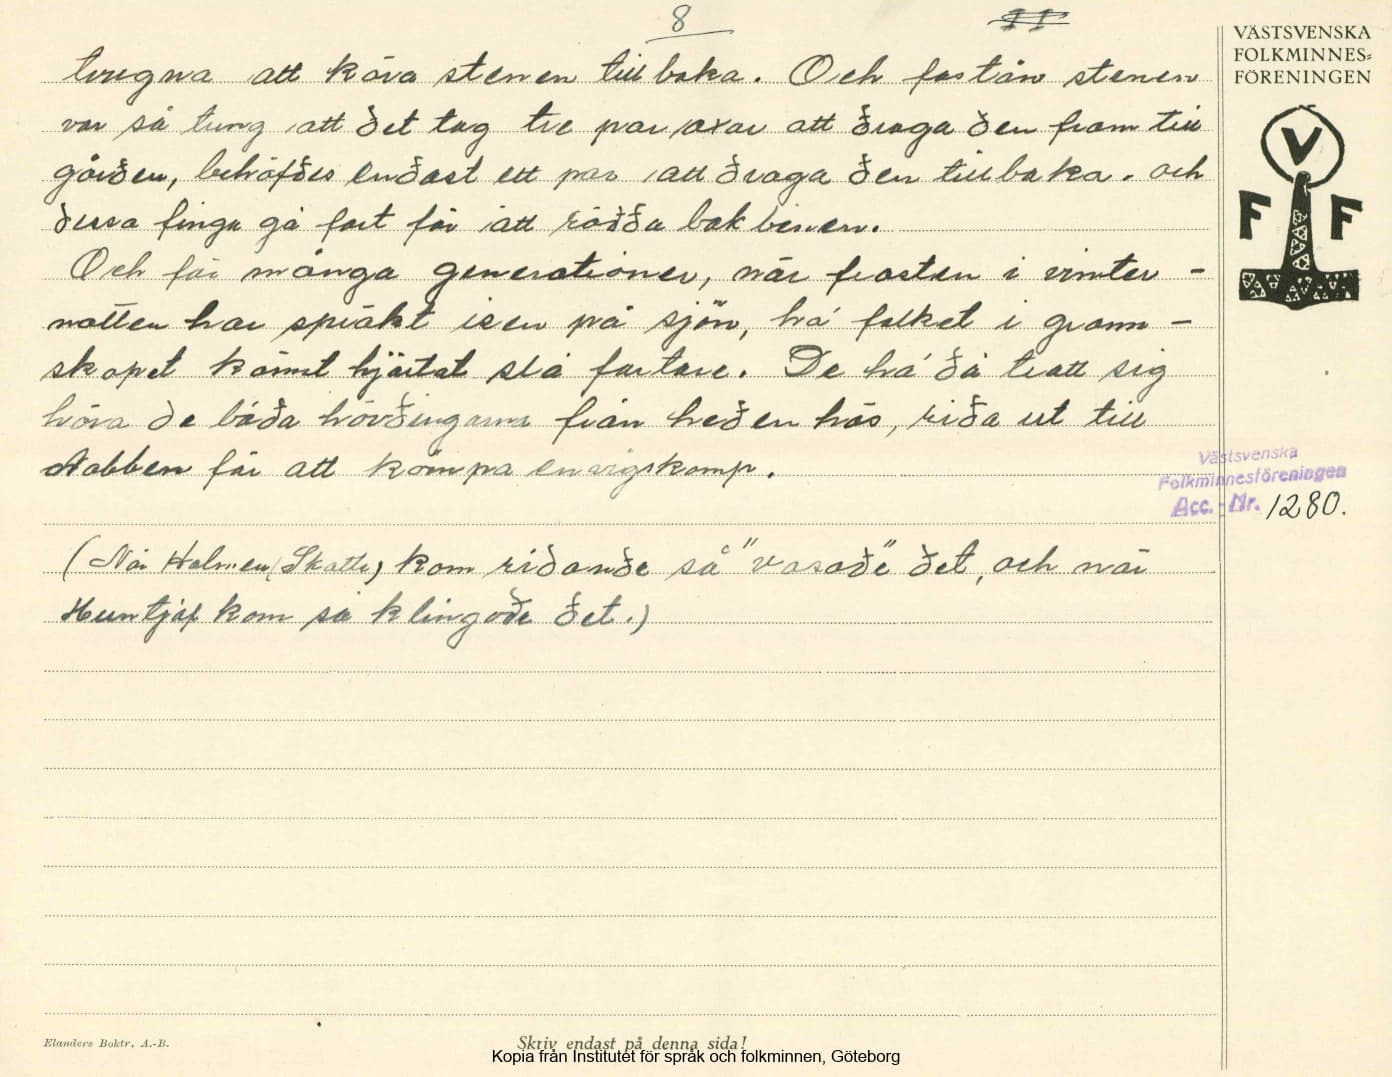 8
11
tvugna att köra stenen tillbaka. Och fastän stenen
var så tung att det tog tre par oxar att draga den fram till
gården, behöfdes endast ett par att draga den tillbaka. och
dessa fingu gå fort för att rädda bakbenen.
Och för många generationer, när frosten i vinter-
natten har spräkt isen på sjön, ha folket i grann-
skapet känt hjärtat slå fortare. De ha då trott sig
höra de båda hövdingarna från heden hös, rida ut till
Nabben för att kämpa envigskamp.
(När Holmen (Skatte) kom ridande så "vasade" det, och när
Huntjof kom så klingade det.)
VÄSTSVENSKA
FOLKMINNES-
FÖRENINGEN
V
F F
Västsvenska
Folkminnesföreningen
Acc.-Nr. 1280.
Elanders Boktr. A.-B.
Skriv endast på denna sida!
Kopia från Institutet för språk och folkminnen, Göteborg